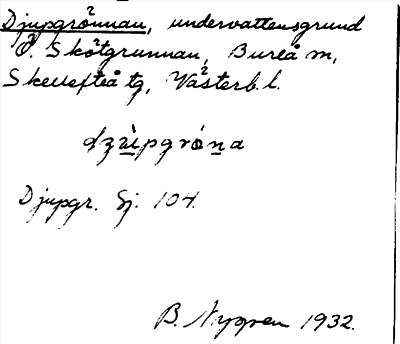 Djupgrönnan, undervattensgrund
Ö. Skötgrunnan, Bureå m,
Skellefteå tg, Västerb. l.
dzùpgróna
Djupgr. Sj. 104.
B. Nygren 1932.